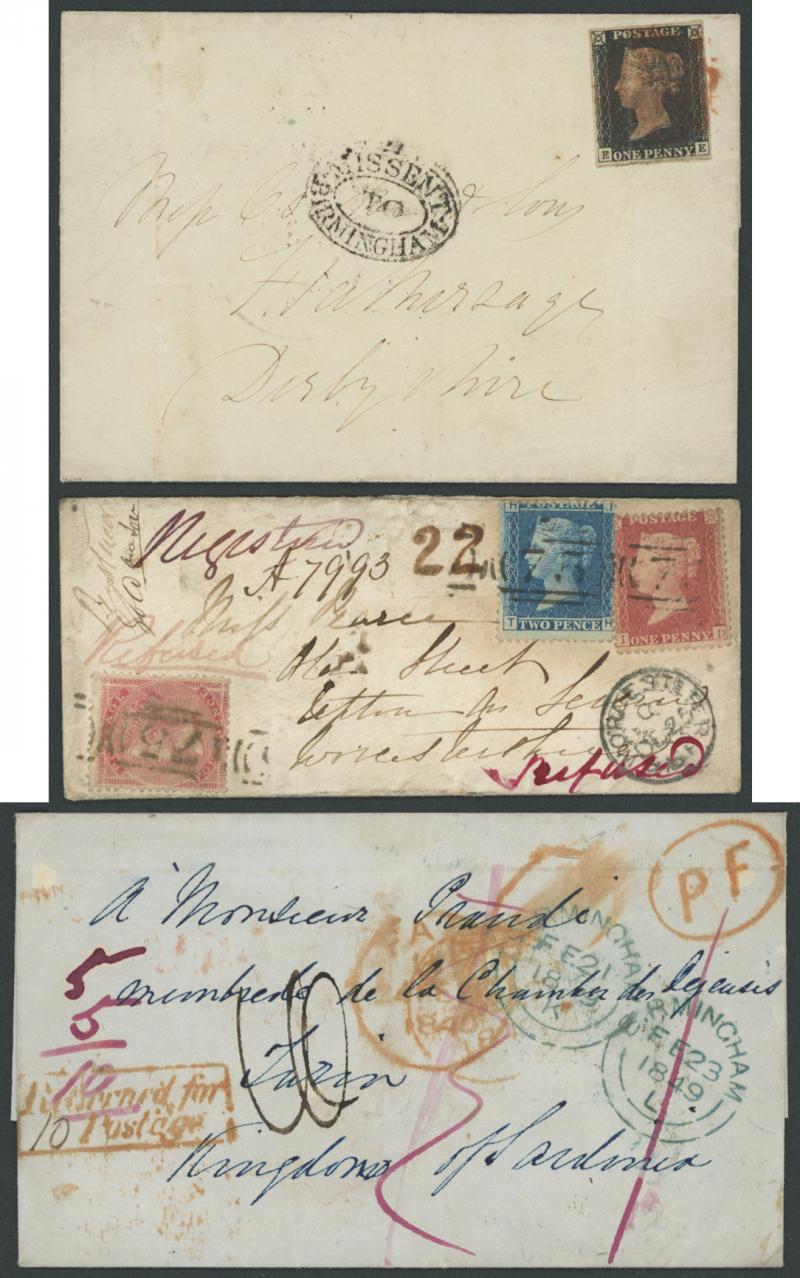 POSTAGE
E ONE PENNY E
MISSENT
TO
BIRMINGHAM
& Sons
Hathersage
Derbyshire
Registered
22
A 7993
Miss Pearce
Refused
Street
Upton On Severn
Worcestershire
Refused
POSTAGE
T TWO PENCE H
POSTAGE
I ONE PENNY D
75
WORCESTER
PF
A Monsieur Prandi
membre de la Chambre des
Turin
Kingdom of Sardinia
5
5
10
Returned for
Postage
10
1849
BIRMINGHAM
FE 21
18
K
BIRMINGHAM
FE 23
1849
L